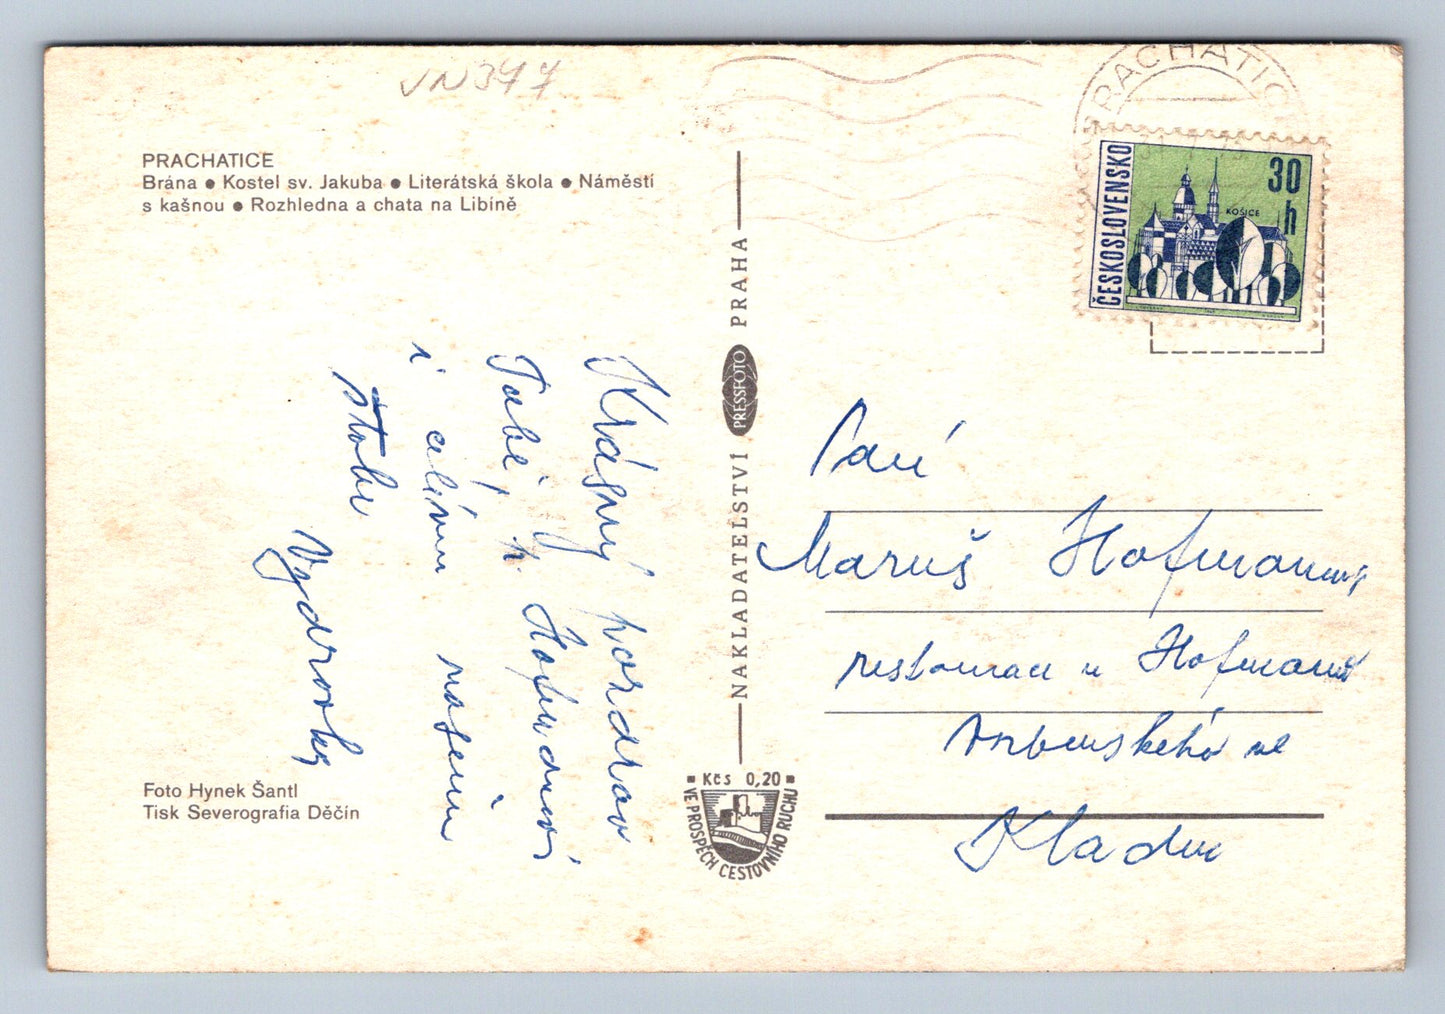 VN347
PRACHATICE
Brána ● Kostel sv. Jakuba ● Literátská škola ● Náměstí
s kašnou ● Rozhledna a chata na Libíně
Krásný pozdrav
Tobě, p. Hofmanovi
i celému našemu
štabu
Vydrovky
Foto Hynek Šantl
Tisk Severografia Děčín
NAKLADATELSTVÍ PRESSFOTO PRAHA
Kčs 0,20
VE PROSPĚCH CESTOVNÍHO RUCHU
PRACHATIC
ČESKOSLOVENSKO
30 h
KOŠICE
Paní
Maruš Hofmanová
restaurace u Hofmanů
ul
Kladno